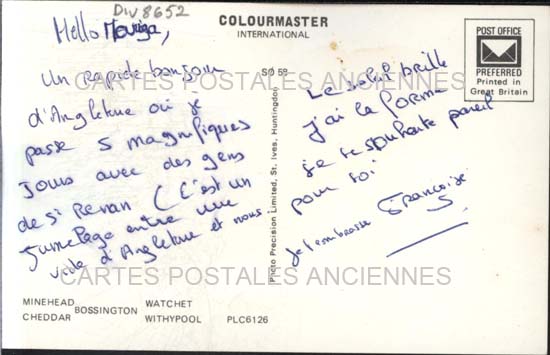 DIV 8652
COLOURMASTER
INTERNATIONAL
POST OFFICE
PREFERRED
Printed in
Great Britain
Hello
Un Rapide bonjour
d'Angleterre où je
passe 5 magnifiques
jours avec des gens
de St Renan (C'est un
Jumelage entre une
ville d'Angleterre et nous.
SO 59
Photo Precision Limited, St. Ives, Huntingdon
Le soleil brille
j'ai la forme
je te souhaite pareil
pour toi
je t'embrasse Françoise
CARTES POSTALES ANCIENNES
CARTES POSTALES ANCIENNES
MINEHEAD BOSSINGTON WATCHET
CHEDDAR WITHYPOOL PLC6126